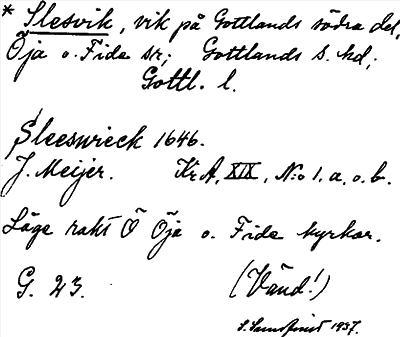 * Slesvik, vik på Gottlands södra del,
Öja o. Fide sr; Gottlands s. hd;
Gottl. l.
Sleeswieck 1646.
J. Meijer. KrA, XIX, N:o 1. a. o. b.
Läge rakt Ö Öja o. Fide kyrkor.
G. 23. (Vänd!)
1937.